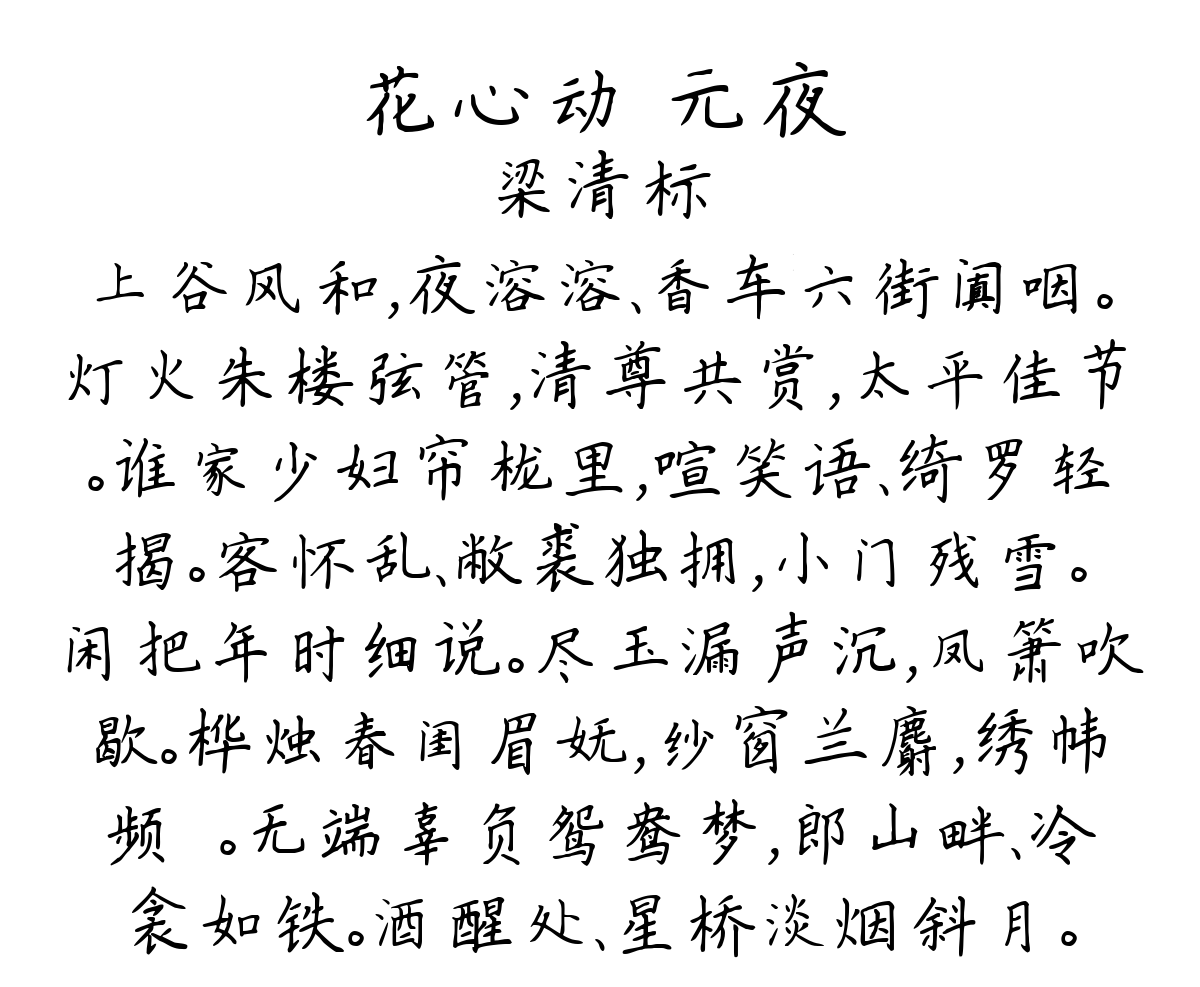 花心动 元夜
梁清标
上谷风和,夜溶溶、香车六街阗咽。
灯火朱楼弦管,清尊共赏,太平佳节
。谁家少妇帘栊里,喧笑语、绮罗轻
揭。客怀乱、敝裘独拥,小门残雪。
闲把年时细说。尽玉漏声沉,凤箫吹
歇。桦烛春闺眉妩,纱窗兰麝,绣帏
频 。无端辜负鸳鸯梦,郎山畔、冷
衾如铁。酒醒处、星桥淡烟斜月。